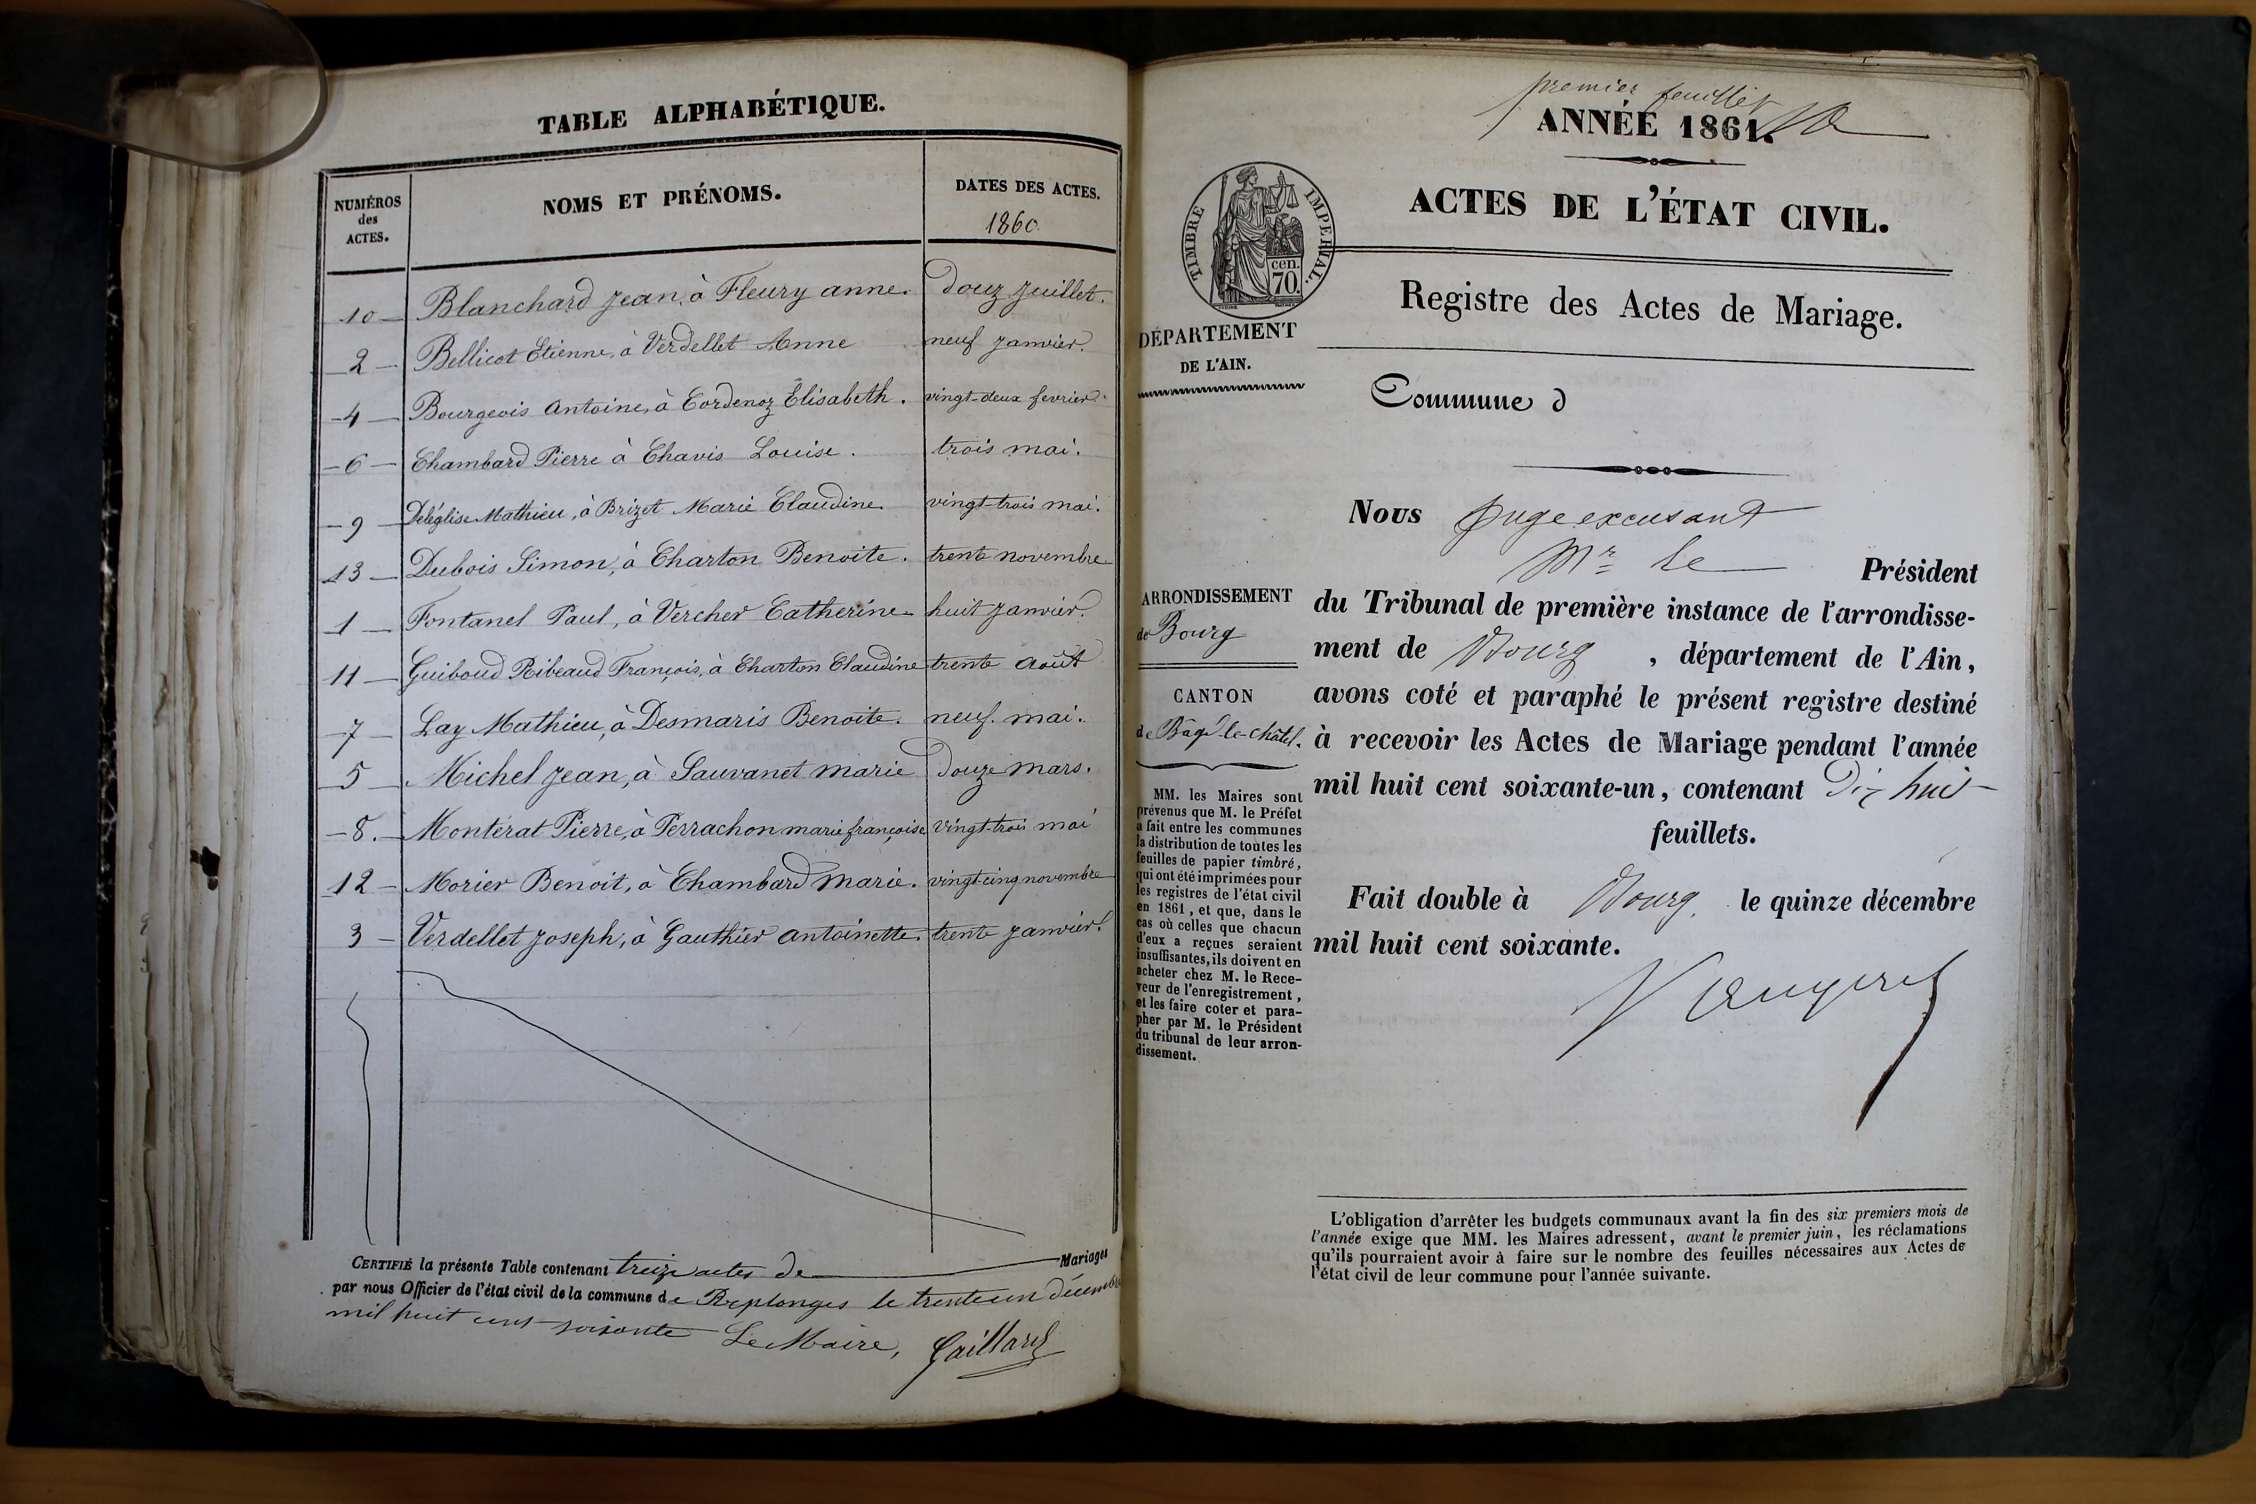 TABLE ALPHABÉTIQUE.
NUMÉROS
des
ACTES.
NOMS ET PRÉNOMS.
DATES DES ACTES.
1860.
10 — Blanchard Jean, à Fleury anne. douz Juillet.
2 — Bellicot Etienne, à Verdellet Anne neuf Janvier.
4 — Bourgeois Antoine, à Cordenoz Elisabeth. vingt-deux fevrier.
6 — Chambard Pierre à Chavis Louise. trois mai.
9 — Deléglise Mathieu, à Brizet Marie Claudine. vingt-trois mai.
13 — Dubois Simon, à Charton Benoite. trente novembre
1 — Fontanel Paul, à Vercher Catherine huit Janvier.
11 — Guiboud Ribeaud François, à Charton Claudine trente Août
7 — Lay Mathieu, à Desmaris Benoite. neuf. mai.
5 — Michel Jean, à Sauvanet Marie Douze Mars.
8. — Monterat Pierre, à Perrachon marie françoise vingt-trois mai
12 — Morier Benoit, à Chambard Marie. vingt-cinq novembre
3 — Verdellet Joseph, à Gauthier Antoinette. trente Janvier.
CERTIFIÉ la présente Table contenant treize actes de Mariages
par nous Officier de l'état civil de la commune de Replonges le trente un décembre
mil huit cent soixante Le Maire, Gaillard
premier feuillet
ANNÉE 1861.
ACTES DE L'ÉTAT CIVIL.
TIMBRE IMPERIAL.
cen.
70.
Registre des Actes de Mariage.
DÉPARTEMENT
DE L'AIN.
Commune d
Nous Juge excusant
Mr le Président
du Tribunal de première instance de l'arrondisse-
ment de Bourg, département de l'Ain,
avons coté et paraphé le présent registre destiné
à recevoir les Actes de Mariage pendant l'année
mil huit cent soixante-un, contenant Dix huit
feuillets.
Fait double à Bourg, le quinze décembre
mil huit cent soixante.
ARRONDISSEMENT
de Bourg
CANTON
de Bâgé-le-châtel.
MM. les Maires sont
prévenus que M. le Préfet
a fait entre les communes
la distribution de toutes les
feuilles de papier timbré,
qui ont été imprimées pour
les registres de l'état civil
en 1861, et que, dans le
cas où celles que chacun
d'eux a reçues seraient
insuffisantes, ils doivent en
acheter chez M. le Rece-
veur de l'enregistrement,
et les faire coter et para-
pher par M. le Président
du tribunal de leur arron-
dissement.
L'obligation d'arrêter les budgets communaux avant la fin des six premiers mois de
l'année exige que MM. les Maires adressent, avant le premier juin, les réclamations
qu'ils pourraient avoir à faire sur le nombre des feuilles nécessaires aux Actes de
l'état civil de leur commune pour l'année suivante.